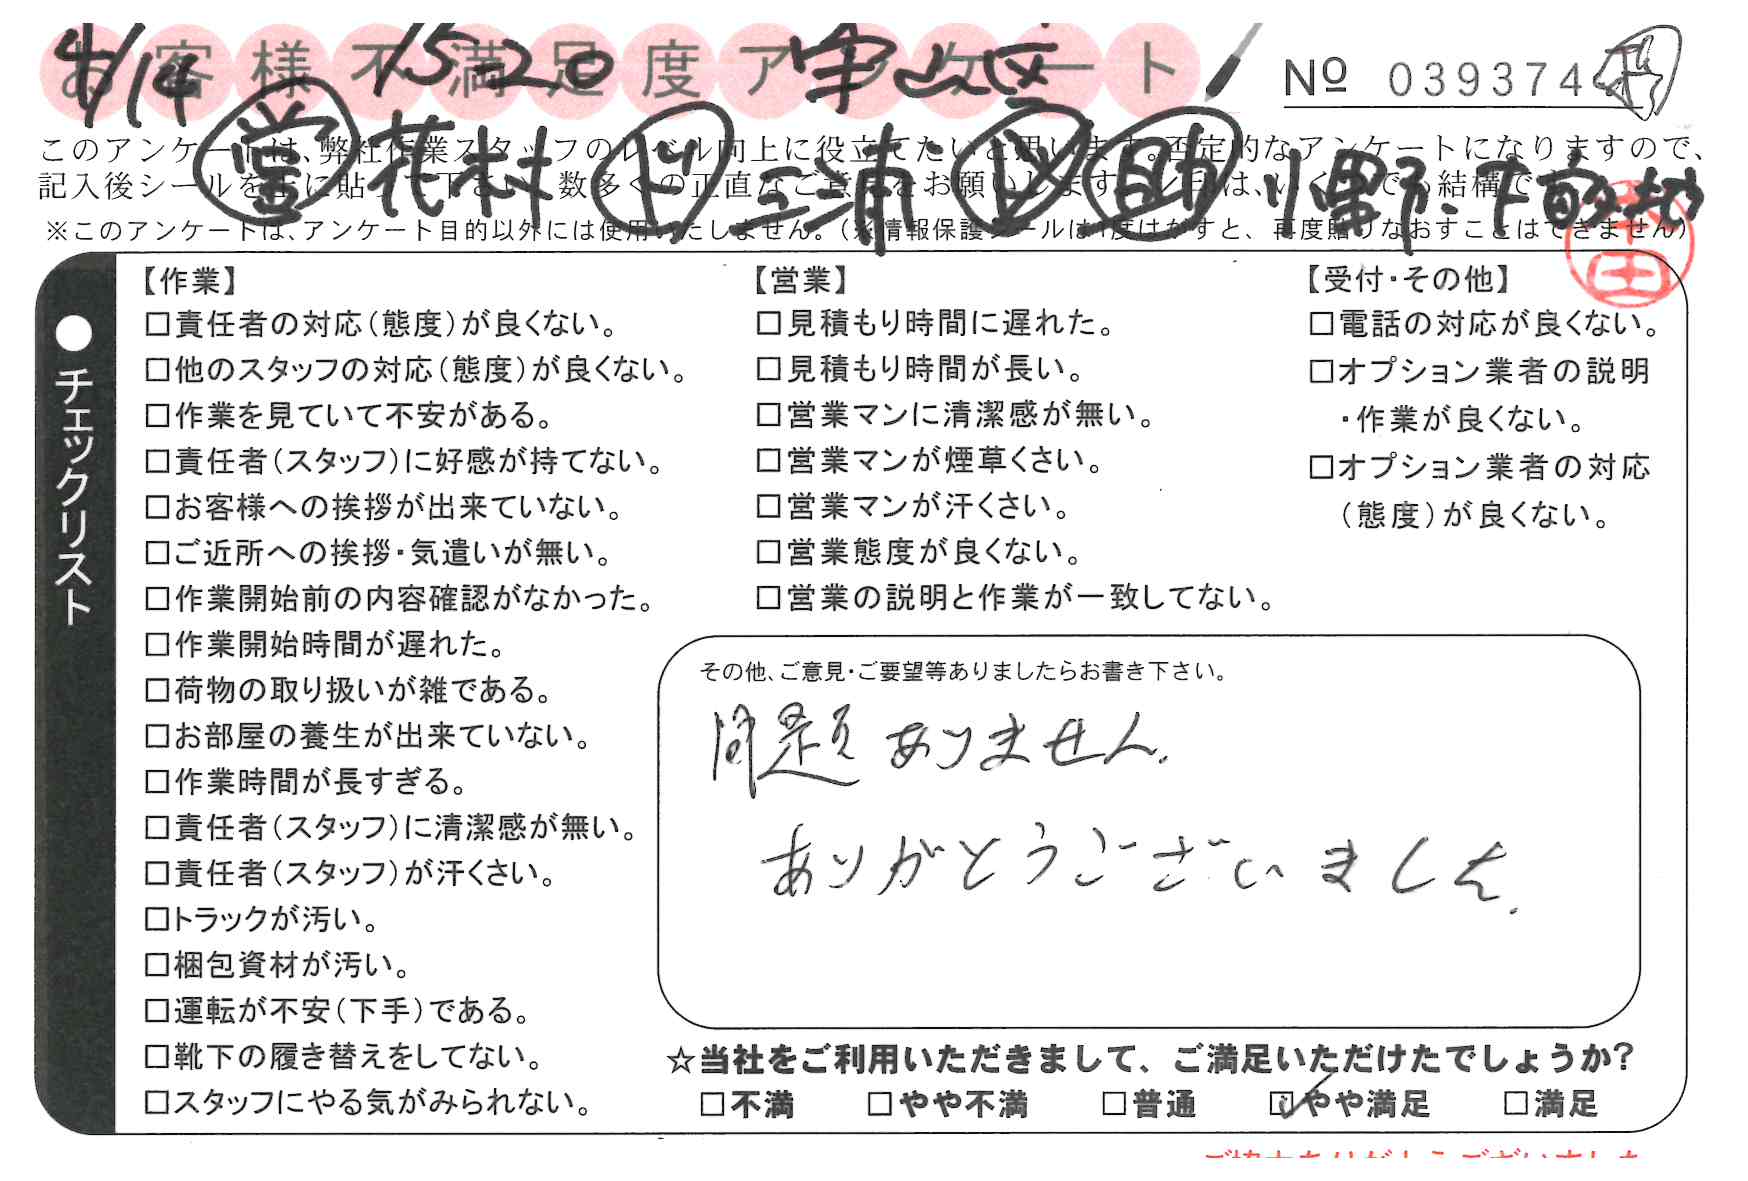 お客様不満足度アンケート
4/14 15-20
Nº 039374
このアンケートは、弊社作業スタッフのレベル向上に役立てたいと思います。否定的なアンケートになりますので、
営 花村 ド 三浦 助 小野・下
記入後シールを上に貼って下さい。数多くの正直なご意見をお願いします。
※このアンケートは、アンケート目的以外には使用いたしません。(※情報保護シールは1度はがすと、再度貼りなおすことはできません)
●チェックリスト
【作業】
□責任者の対応(態度)が良くない。
□他のスタッフの対応(態度)が良くない。
□作業を見ていて不安がある。
□責任者(スタッフ)に好感が持てない。
□お客様への挨拶が出来ていない。
□ご近所への挨拶・気遣いが無い。
□作業開始前の内容確認がなかった。
□作業開始時間が遅れた。
□荷物の取り扱いが雑である。
□お部屋の養生が出来ていない。
□作業時間が長すぎる。
□責任者(スタッフ)に清潔感が無い。
□責任者(スタッフ)が汗くさい。
□トラックが汚い。
□梱包資材が汚い。
□運転が不安(下手)である。
□靴下の履き替えをしてない。
□スタッフにやる気がみられない。
【営業】
□見積もり時間に遅れた。
□見積もり時間が長い。
□営業マンに清潔感が無い。
□営業マンが煙草くさい。
□営業マンが汗くさい。
□営業態度が良くない。
□営業の説明と作業が一致してない。
【受付・その他】
□電話の対応が良くない。
□オプション業者の説明
・作業が良くない。
□オプション業者の対応
(態度)が良くない。
その他、ご意見・ご要望等ありましたらお書き下さい。
問題ありません.
ありがとうございました.
☆当社をご利用いただきまして、ご満足いただけたでしょうか?
□不満 □やや不満 □普通 ☑やや満足 □満足
ご協力ありがとうございました